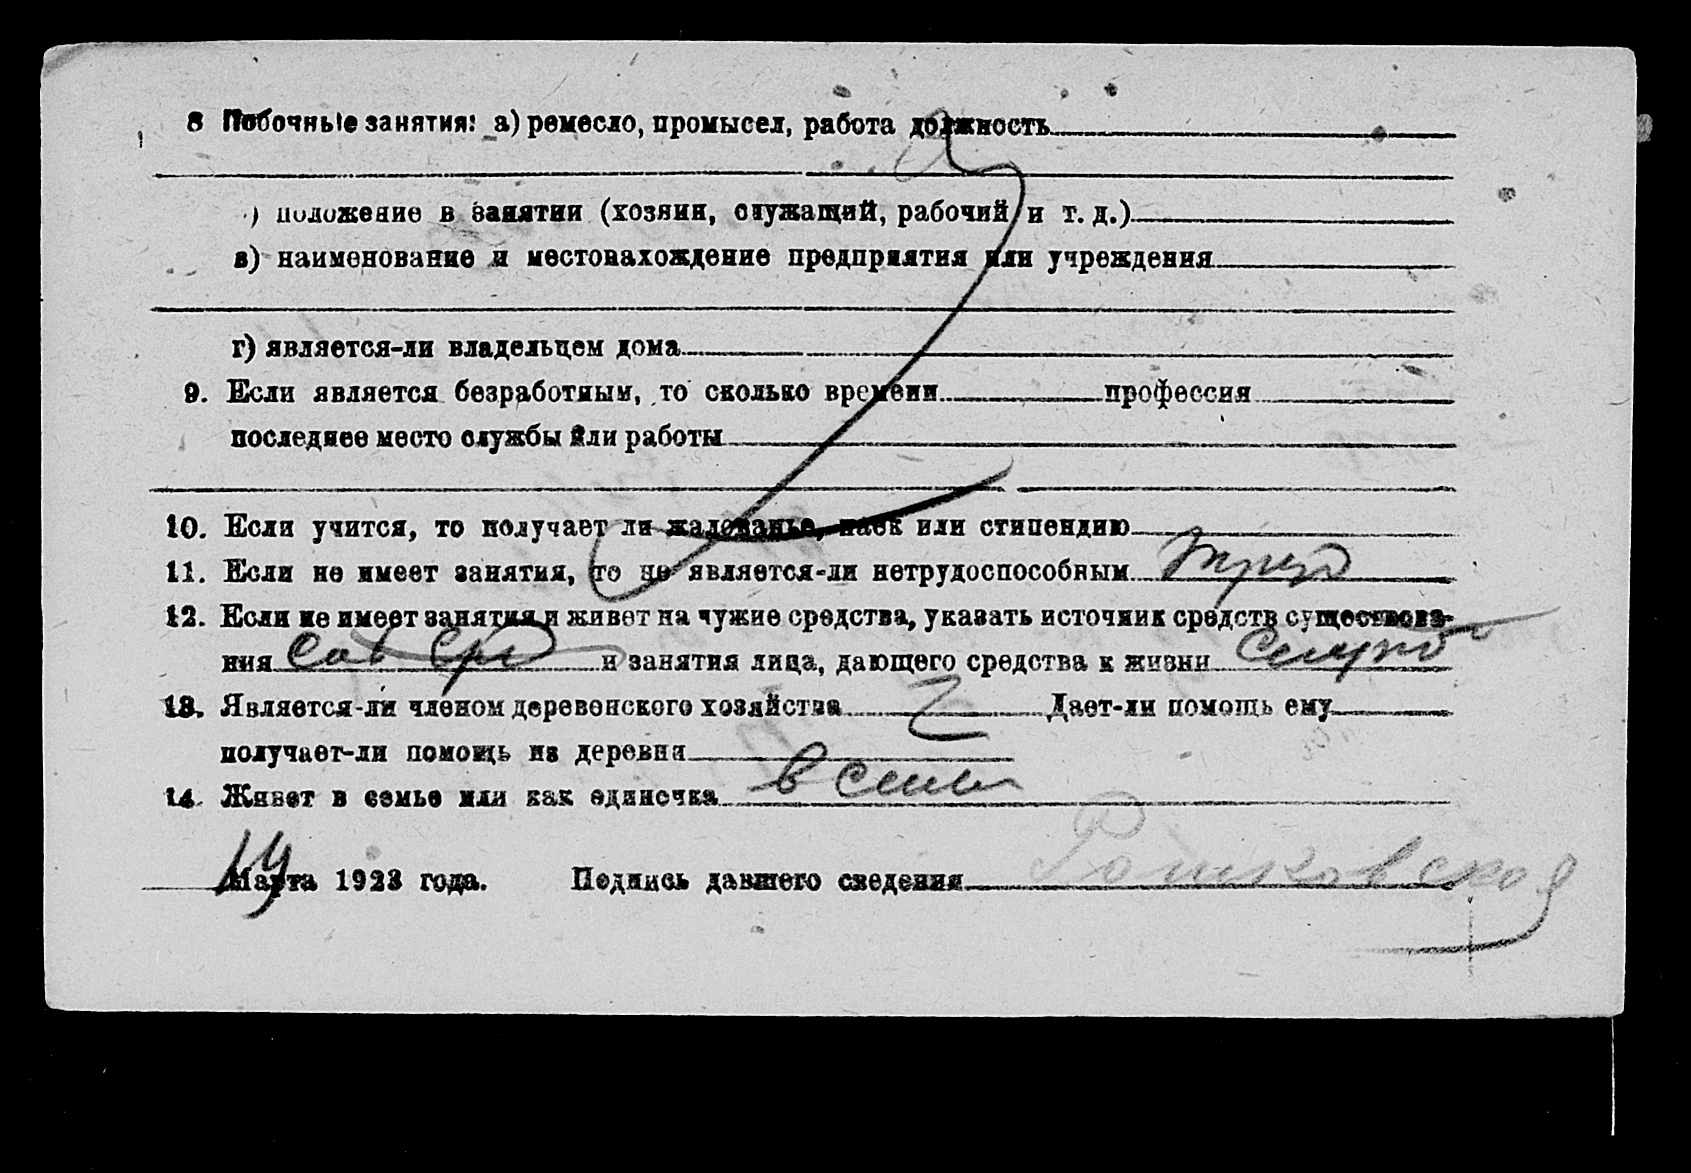 8 Побочные занятия: а) ремесло, промысел, работа должность
) положение в занятии (хозяин, служащий, рабочий и т. д.)
в) наименование и местонахождение предприятия или учреждения
г) является-ли владельцем дома
9. Если является безработным, то сколько времени профессия
последнее место службы или работы
10. Если учится, то получает ли жалованье, паек или стипендию
11. Если не имеет занятия, то не является-ли нетрудоспособным
12. Если не имеет занятия и живет на чужие средства, указать источник средств существова-
ния и занятия лица, дающего средства к жизни
13. Является-ли членом деревенского хозяйства Дает-ли помощь ему
получает-ли помощь из деревни
14. Живет в семье или как одиночка в семье
14 Марта 1923 года. Подпись давшего сведения